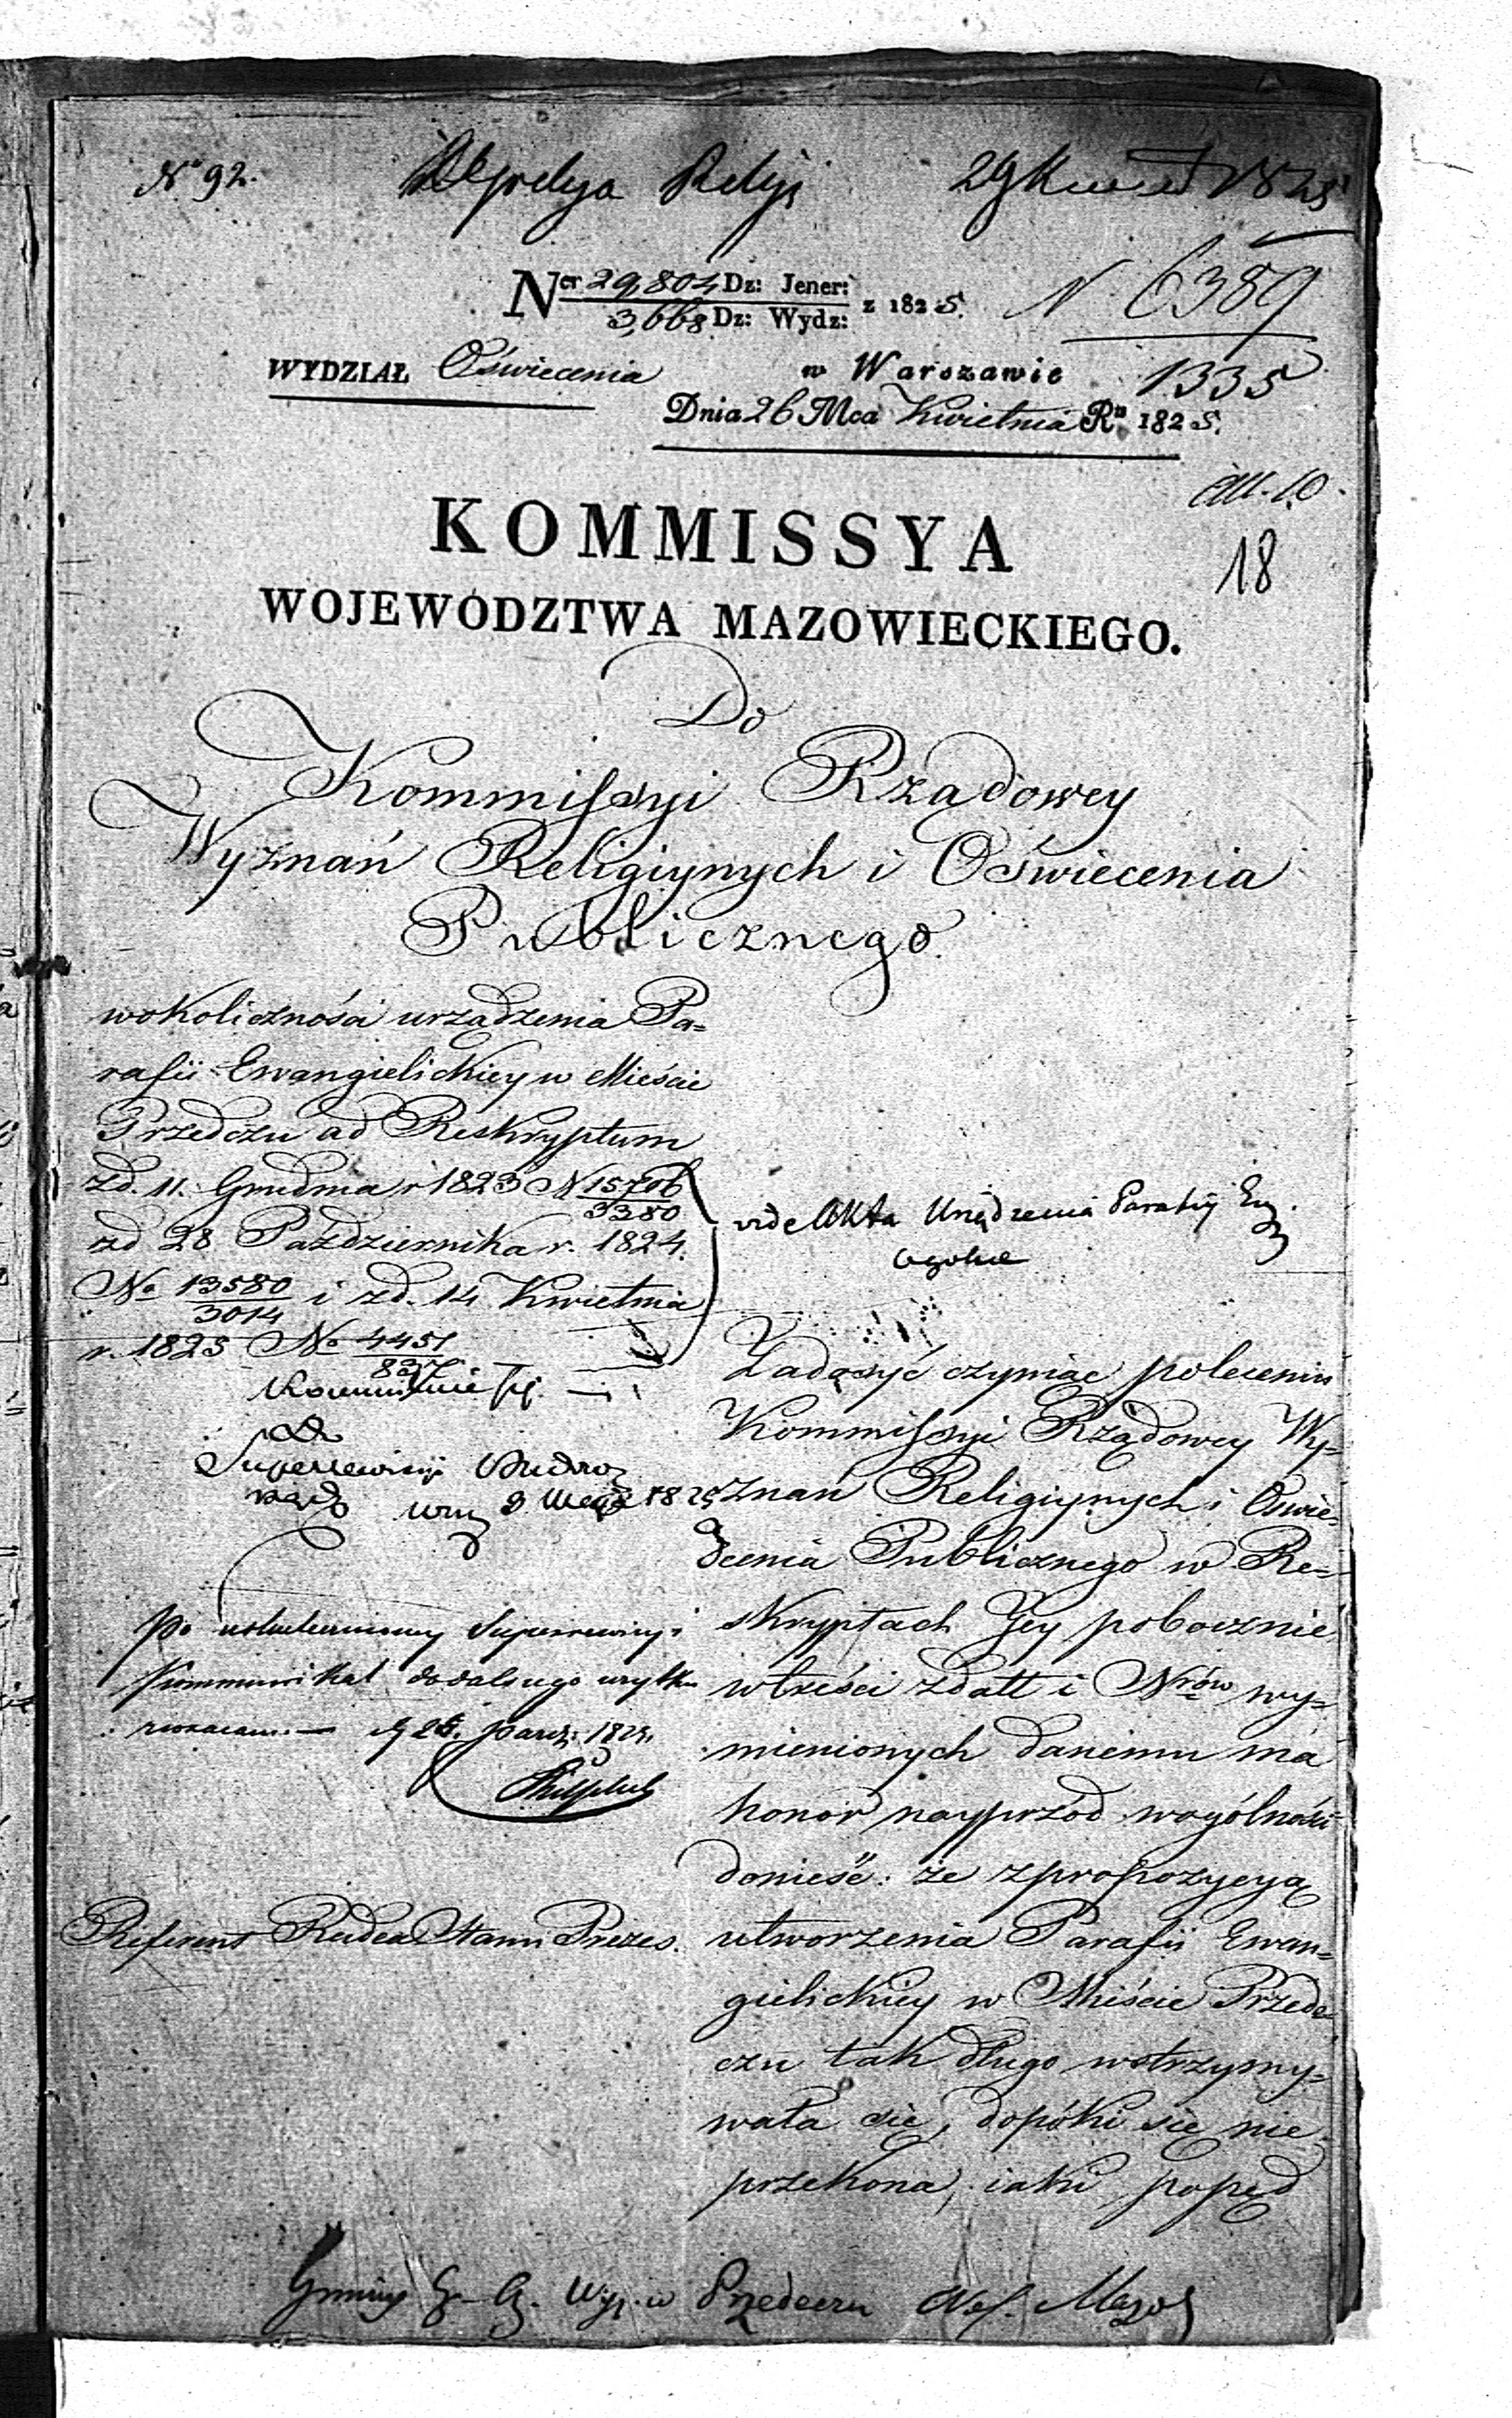 N° 92. Religi 29 Kwiet 1825
N 6389
1335
N er 29,804 Dz: Jener:
3,668 Dz: Wydz: z 1825.
WYDZIAŁ Oświecenia
w Warszawie
Dnia 26 Mca Kwietnia R° 1825.
all. 10.
18
KOMMISSYA
WOJEWÓDZTWA MAZOWIECKIEGO.
Do
Kommissyi Rządowey
Wyznań Religiynych i Oświecenia
Publicznego.
w okoliczności urządzenia Pa=
rafii Ewangielickiey w Mieście
Przedczu ad Reskryptum
z d. 11. Grudnia r 1823 N 15706
3380
z d 28 Października r. 1824.
No 13580
3014 i z d. 14 Kwietnia
r. 1825 No 4451
837
vide Akta Urządzenia Parafij Ew.
ogólne
do
Superrewizyi Budow
9 Maja 1825
Po Superrewizyi
Kommunikat do dalszego użytku
zwracam. — 25. Paźdz: 1825.
Referent Radca Stanu Prezes.
Zadosyć czyniąc poleceniu
Kommissyi Rządowey Wy=
znań Religiynych i Oświe=
cenia Publicznego w Re=
skryptach Jey pobocznie
w treści z datt i Nrów wy=
mienionych danemu ma
honor nayprzód w ogólności
donieść: że z propozycyą
utworzenia Parafii Ewan=
gielickiey w Mieście Przede=
czu tak długo wstrzymy=
wała się, dopóki się nie
przekona, iaki popęd
Gminy E. A. Wyz. w Przedeczu Woj. Mazow